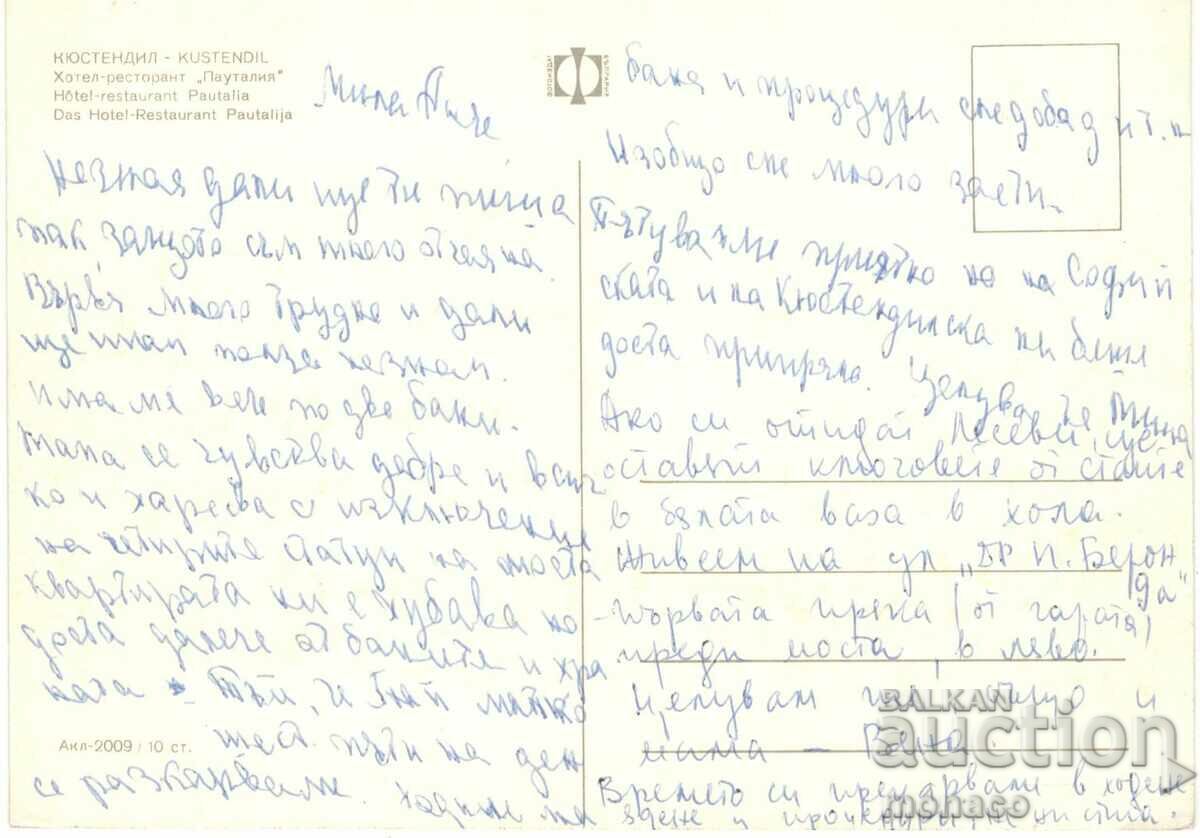 КЮСТЕНДИЛ - KUSTENDIL
Хотел-ресторант „Пауталия"
Hôtel-restaurant Pautalia
Das Hotel-Restaurant Pautalija
Мила
Незная дали ще ти пиша
пак, защото съм много отчаяна.
Вървя много трудно и дали
ще има полза незнам.
Имаме вече по две бани.
Мама се чувства добре и всич
ко и харесва с изключение
на четирите статуи на моста
квартирата ни е хубава но
доста далече от баните и хра
ната Тъй, че най малко
шест пъти на ден
се разкарваме. Ходим на
Акл-2009 / 10 ст.
ФОТОИЗДАТ БЪЛГАРИЯ
баня и процедури следобяд и т.н
Изобщо сме много заети.
Пътувахме приятно но на Софий
ската и на Кюстендилска ни беше
доста припряно. Целува те Мама
Ако си отидат ще
оставят ключовете от стаите
в бялата ваза в хола.
Живеем на ул „Д-р П. Берон
да"
първата пряка (от гарата)
преди моста, в ляво.
Целувам и
мама - Ваня.
Времето си прекарваме в ходене
ядене и процедури
BALKAN
auction
monaco